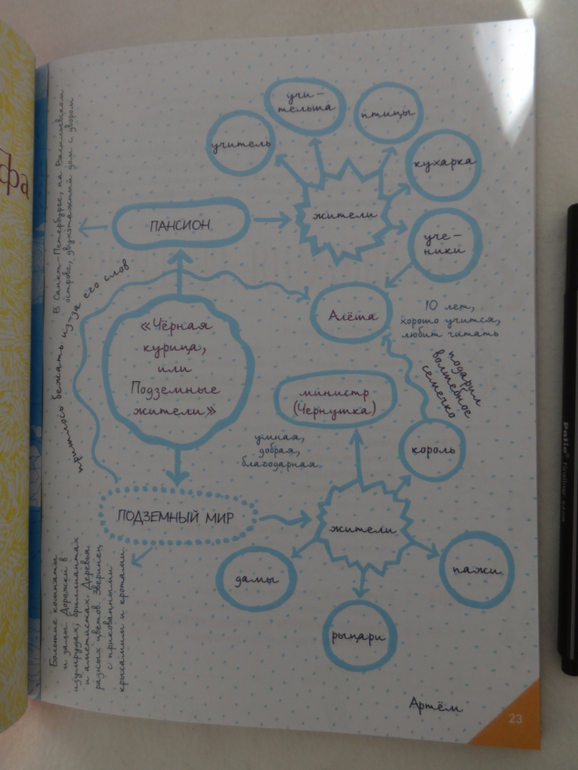 фа
В Санкт-Петербурге, на Васильевском
острове, двухэтажный дом с двором
учитель
учи-
тельша
птицы
кухарка
уче-
ники
жители
ПАНСИОН
пришлось бежать из-за его слов
Алёша
10 лет,
хорошо учится,
любит читать
«Чёрная
курица,
или
Подземные
жители»
министр
(Чернушка)
умная,
добрая,
благодарная
подарил
волшебное
семечко
король
ПОДЗЕМНЫЙ МИР
жители
дамы
рыцари
пажи
Большие комнаты
и залы. Дорожки в
изумрудах, бриллиантах
и аметистах. Деревья
разных цветов. Зверинец
с прикованными
крысами и кротами.
Артём
23